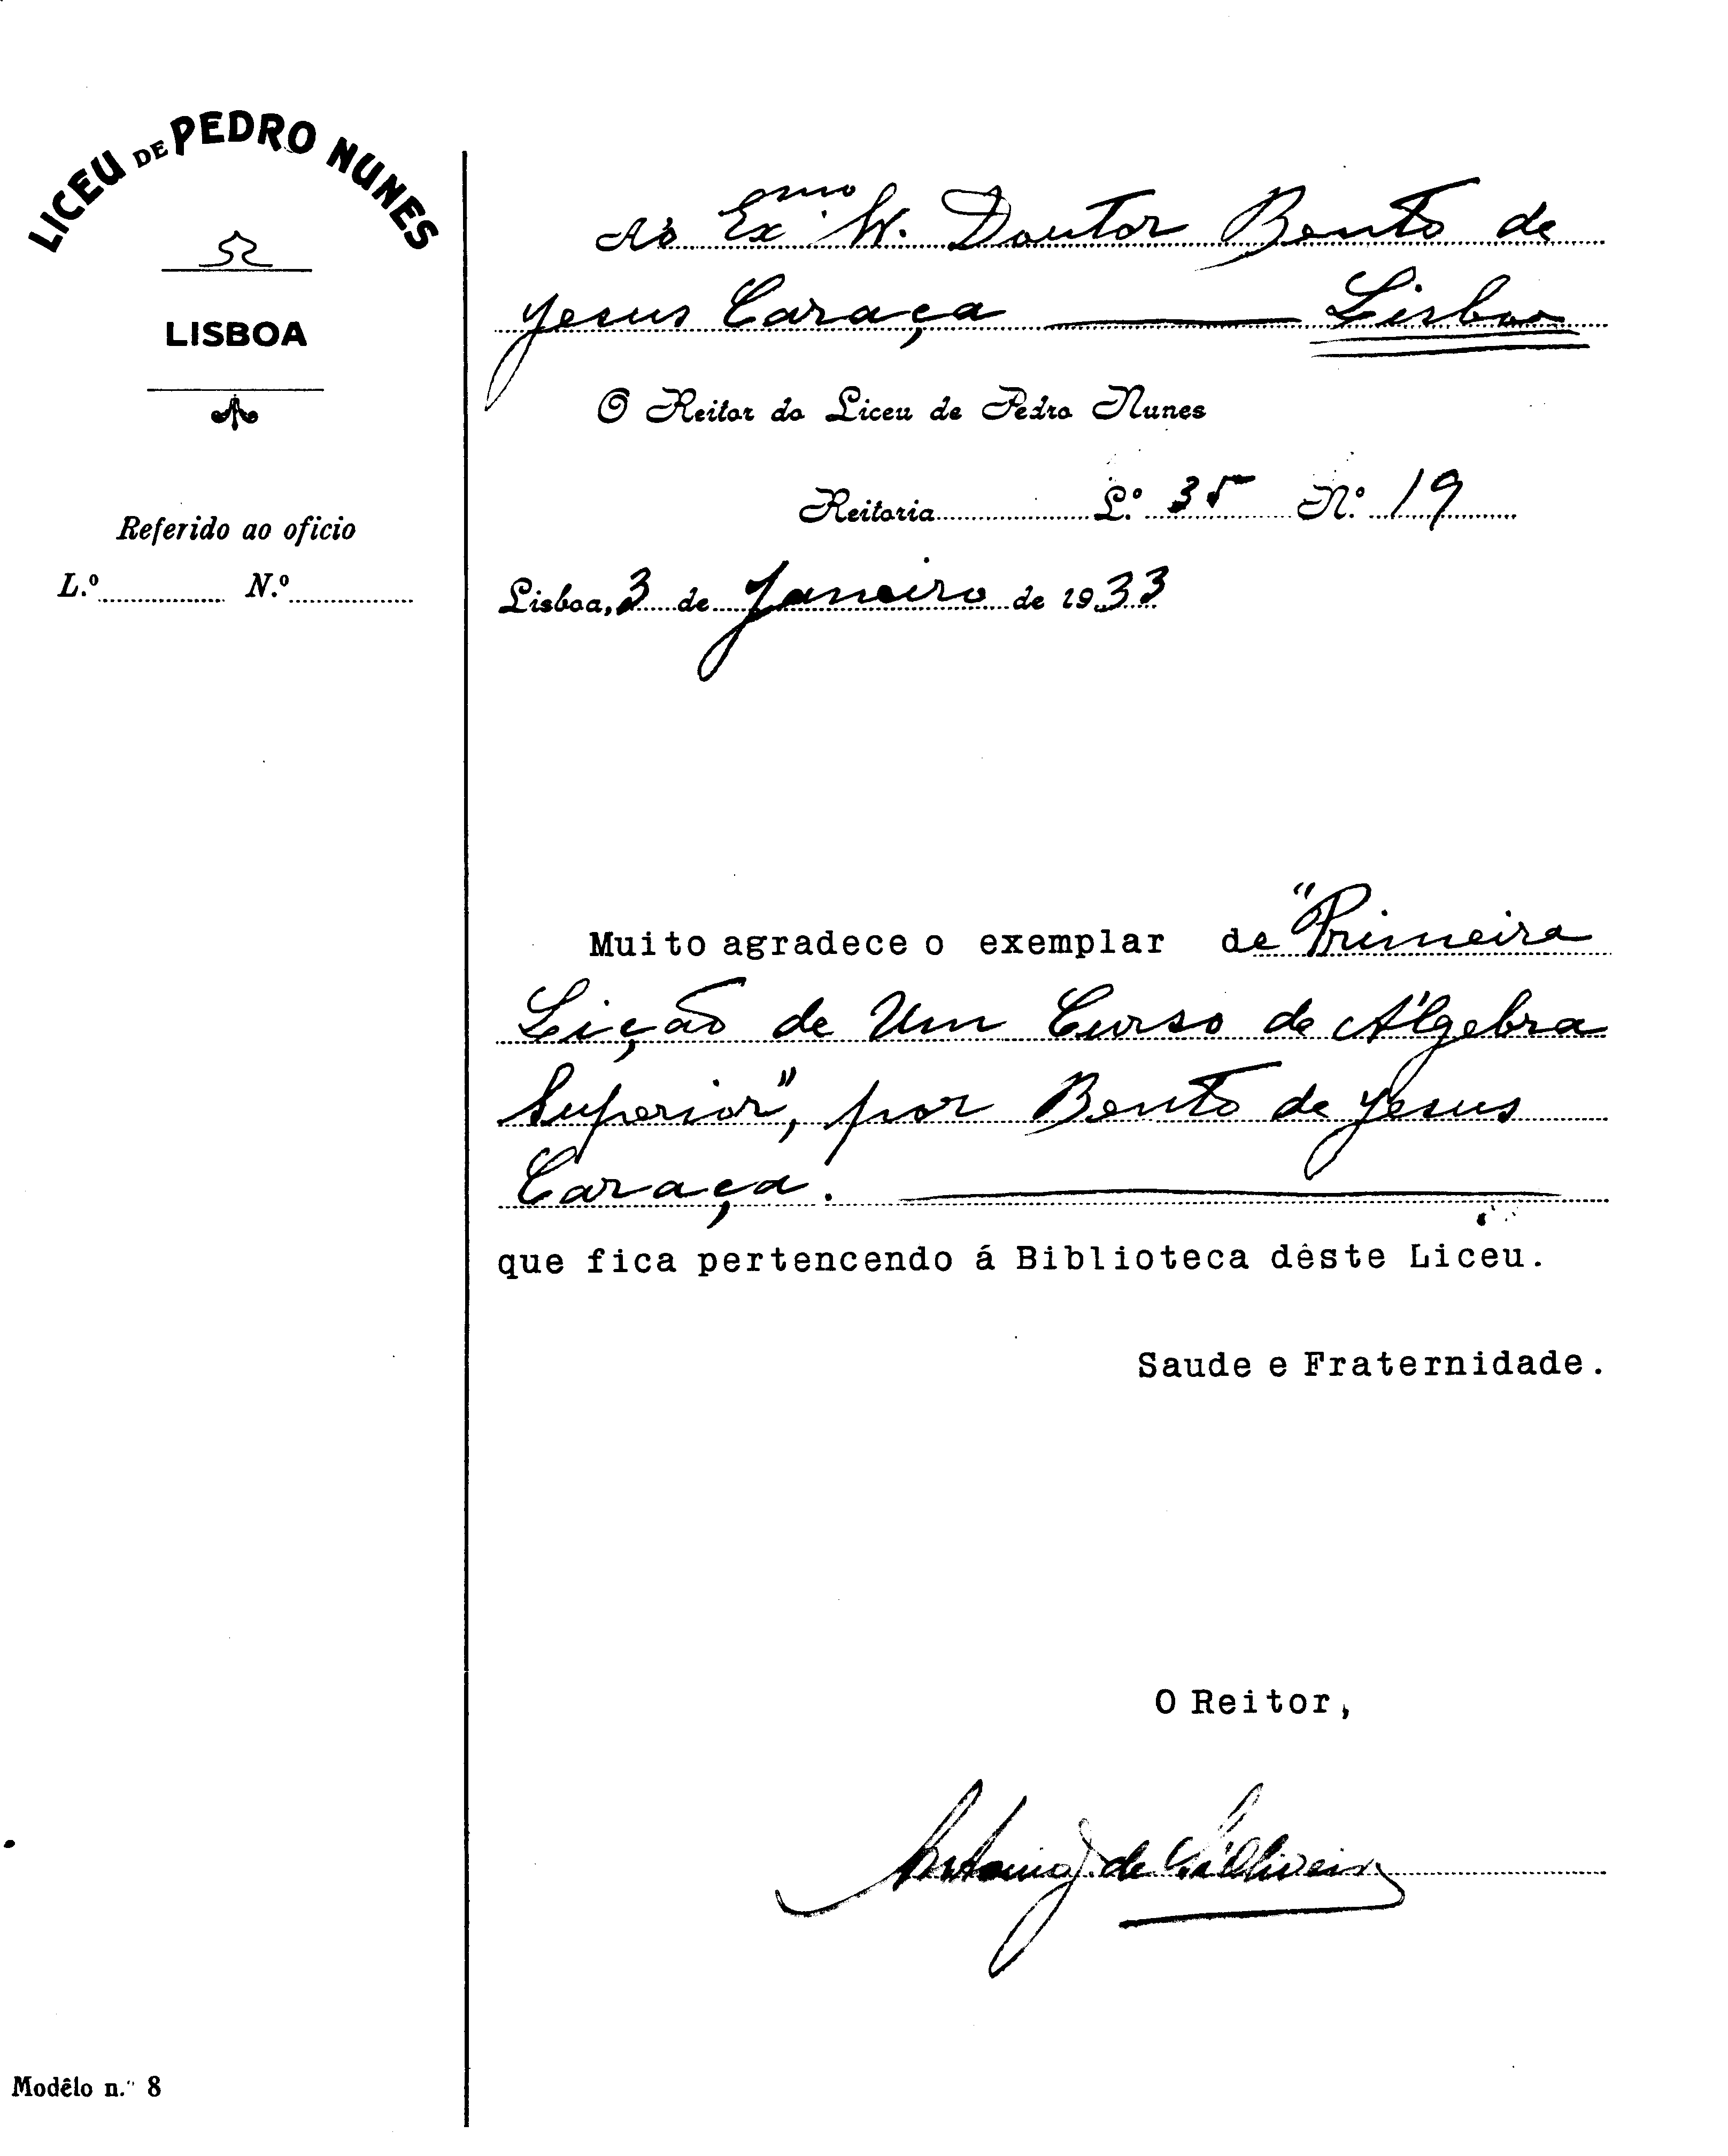 LICEU DE PEDRO NUNES
LISBOA
Referido ao oficio
L.º N.º
Ao Exmo Sr. Doutor Bento de
Jesus Caraça — Lisboa
O Reitor do Liceu de Pedro Nunes
Reitoria L.º 35 N.º 19
Lisboa, 3 de Janeiro de 1933
Muito agradece o exemplar de "Primeira
Lição de Um Curso de Álgebra
Superior", por Bento de Jesus
Caraça.
que fica pertencendo á Biblioteca dêste Liceu.
Saude e Fraternidade.
O Reitor,
Modêlo n.º 8